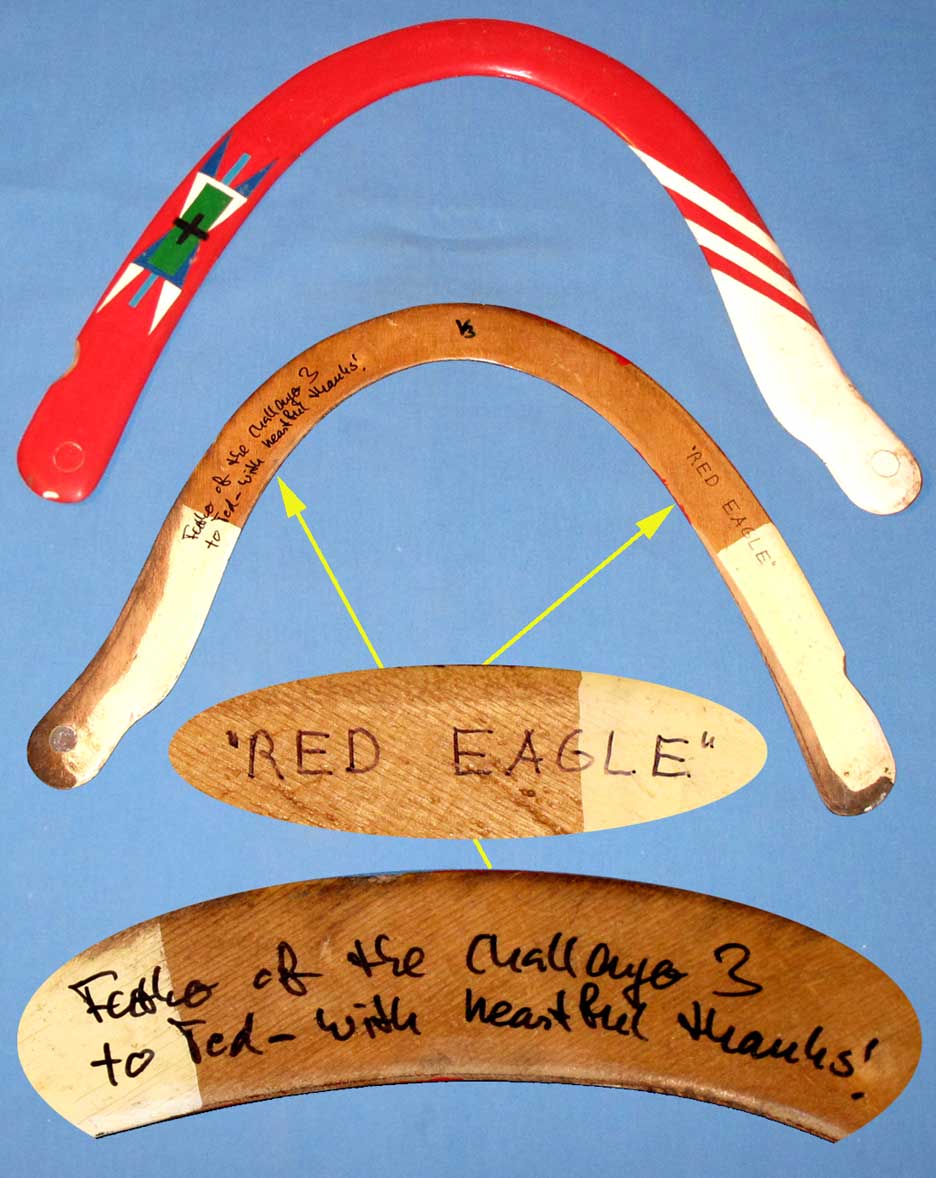 V3
Father of the Challenger 3
to Ted - with heartful thanks!
"RED EAGLE"
"RED EAGLE"
Father of the Challenger 3
to Ted - with heartful thanks!